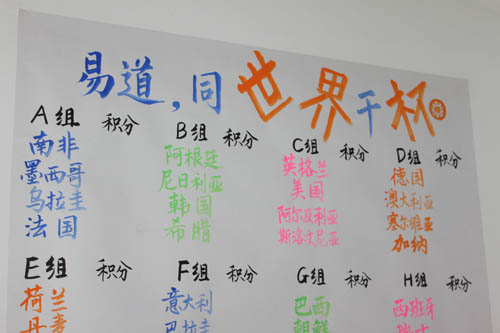 易道，同世界干杯
A组 积分
南非
墨西哥
乌拉圭
法国
B组 积分
阿根廷
尼日利亚
韩国
希腊
C组 积分
英格兰
美国
阿尔及利亚
斯洛文尼亚
D组 积分
德国
澳大利亚
塞尔维亚
加纳
E组 积分
荷兰
F组 积分
意大利
G组 积分
巴西
朝鲜
H组 积分
西班牙